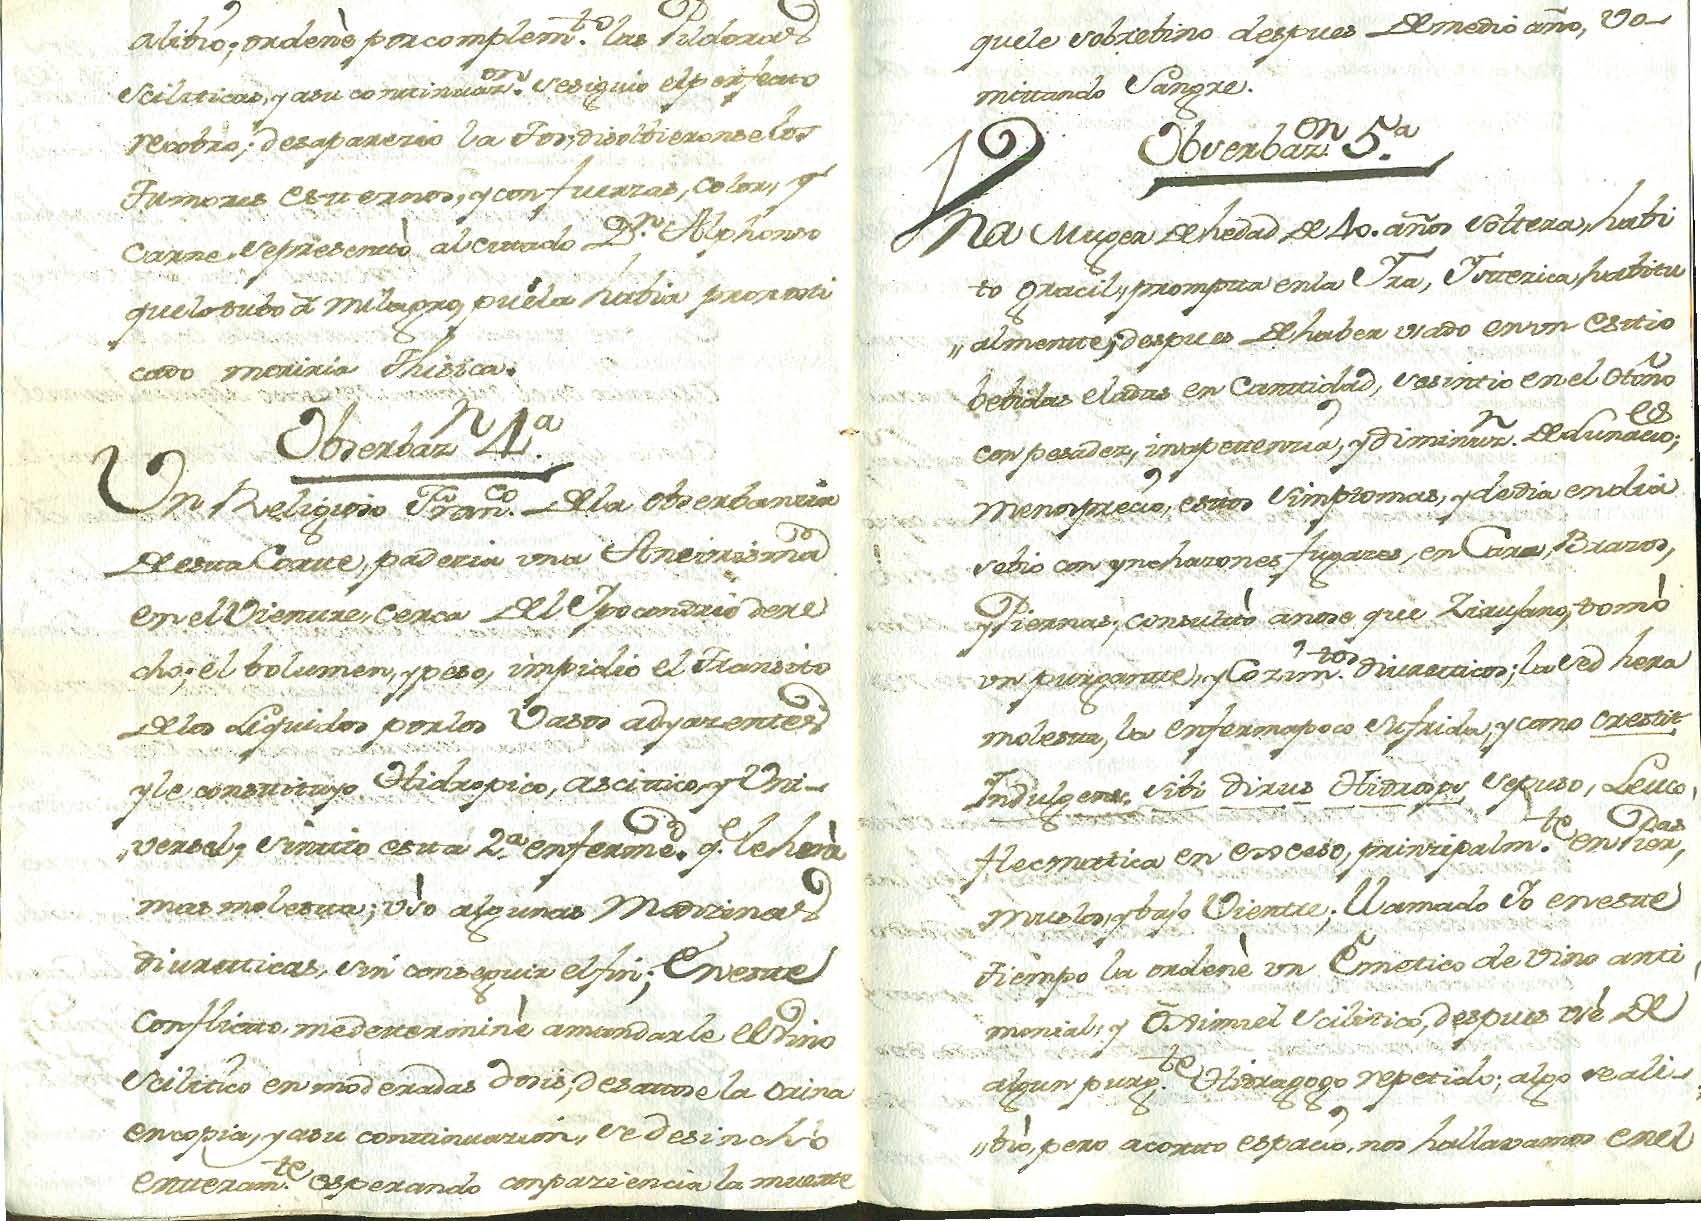 alibio; ordenè por complem.to las Pildoras
Scilíticas, y a su continuaz.on se siguio el perfecto
recobro; desaparezio la Tos, disolbieronse los
Tumores esternos, y con fuerzas, color, y
Carne se presentò al citado D.n Alphonso
que lo tubo a Milagro, pues la habia pronosti
cado moriria Thisica.
Obserbaz.n 4.a
Un Religioso Fran.co de la obserbancia
de esta Corte, padecia una Aneurisma
en el Vientre, cerca del Ipocondrio dere
cho; el bolumen, y peso, impidio el Transito
de los Liquidos por los Vasos adyazentes
y le constituyo Hidropico, ascitico, y Uni-
"versal; sintio esta 2.a enferme.d q.e le herà
mas molesta; usò algunas Medizinas
diureticas, sin conseguir el fin; En este
Conflicto, me determinè a mandarle el Vino
Scilitico en moderadas dosis; desatose la orina
en copia, y a su continuazion, se desinchò
enteram.te esperando con paziencia la muerte
que le sobrebino despues de medio año, vo-
mitando Sangre.
Obserbaz.on 5.a
Una Muger de hedad de 40. años soltera, habi
to gracil, prompta en la Yra, Isterica habitu
"almente; despues de haber usado en un Estio
bebidas eladas en Cantidad, se sintio en el Otoño
con pesadez, inapetencia, y diminuz.n de Lunacio.es;
Menospreciò, estos simptomas, y de dia en dia
se bio con ynchazones fugazes, en Cara, Brazos,
y Piernas; consultò a no se que Zirujano, tomò
un purgante, y Cozim.tos diureticos; la sed hera
molesta, la enferma poco sufrida, y como crescit
Indulgens sibi dirus Hidrops, se puso, Leuco
flecmatica en exceso, principalm.te en Pier.nas,
Muslos, y bajo Vientre; llamado Yo en este
tiempo la ordenè un Emetico de Vino anti
monial, y Oximiel scilitico, despues usè de
algun purg.te Hidragogo repetido; algo se ali-
"biò, pero a corto espacio, nos hallavamos en el